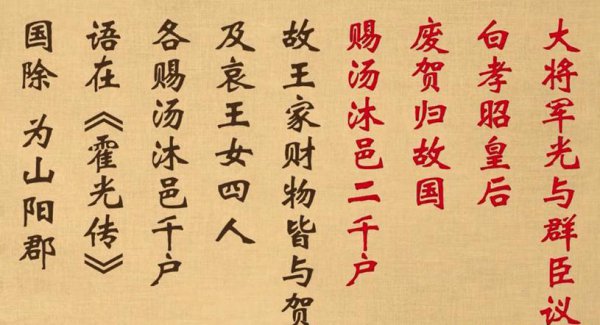 大将军光与群臣议
白孝昭皇后
废贺归故国
赐汤沐邑二千户
故王家财物皆与贺
及哀王女四人
各赐汤沐邑千户
语在《霍光传》
国除 为山阳郡